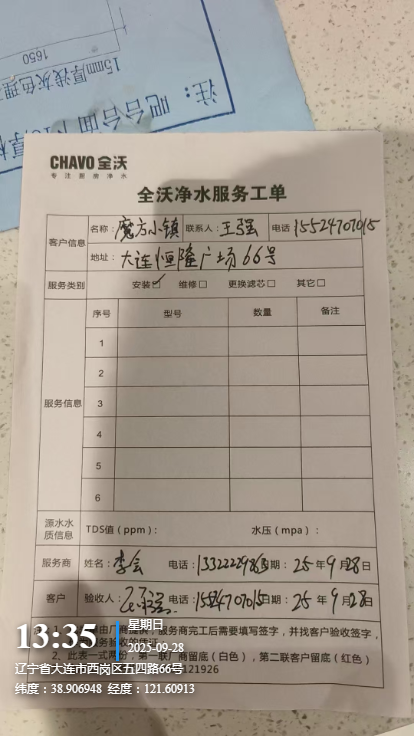 1650
15mm厚浅灰色理
注：吧台台面
CHAVO 全沃
专注厨房净水
全沃净水服务工单
客户信息 名称：魔方小镇 联系人：王强 电话 15524707015
地址：大连恒隆广场66号
服务类别 安装☑ 维修□ 更换滤芯□ 其它□
服务信息 序号 型号 数量 备注
1
2
3
4
5
6
源水水质信息 TDS值（ppm）： 水压（mpa）：
服务商 姓名：李会 电话： 日期：25年9月28日
客户 验收人： 电话：15524707015 日期：25年9月28日
由厂商提供，服务商完工后需要填写签字，并找客户验收签字，
务验收的凭证。
2、此表一式两份，第一联厂商留底（白色），第二联客户留底（红色）
121926
13:35
星期日
2025-09-28
辽宁省大连市西岗区五四路66号
纬度：38.906948 经度：121.60913